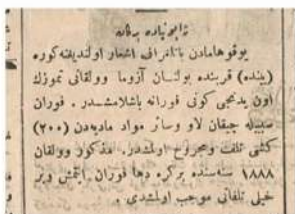 ژاپونیاده یركان
یوقوهامادن باتلغراف اشعار اولندیغنه كوره
(بنده) قربنده بولنان آزوما وولقانی تموزك
اون یدنجی كونی فورانه باشلامشدر . فوران
سببیله چیقان لاو وسائر مواد مادیه‌دن (۲۰۰)
كشی تلف ومجروح اولمشدر . مذكور وولقان
۱۸۸۸ سنه‌سنده بركره دها فوران ایتمش وبر
خیلی تلفاتی موجب اولمشدی .